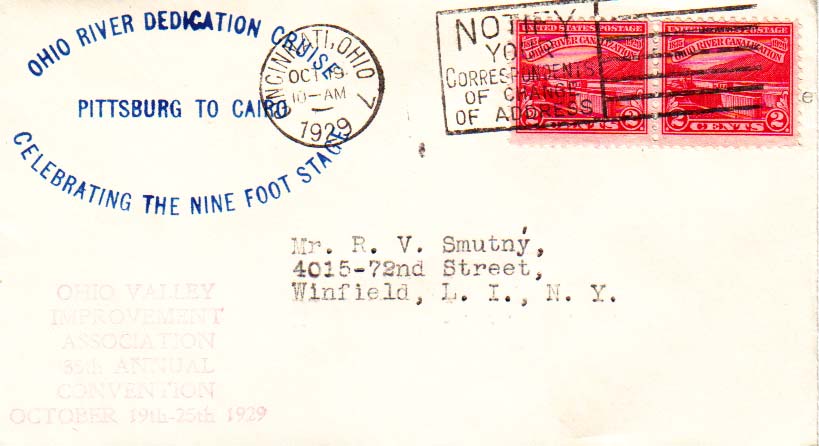 OHIO RIVER DEDICATION CRUISE
PITTSBURG TO CAIRO
CELEBRATING THE NINE FOOT STAGE
CINCINNATI, OHIO 7
OCT 19
10-AM
1929
NOTIFY
YOUR
CORRESPONDENTS
OF CHANGE
OF ADDRESS
UNITED STATES POSTAGE
OHIO RIVER CANALIZATION
2 CENTS 2
UNITED STATES POSTAGE
1875 1929
OHIO RIVER CANALIZATION
2 CENTS 2
Mr. R. V. Smutný,
4015-72nd Street,
Winfield, L. I., N. Y.
OHIO VALLEY
IMPROVEMENT
ASSOCIATION
35th ANNUAL
CONVENTION
OCTOBER 19th-25th 1929